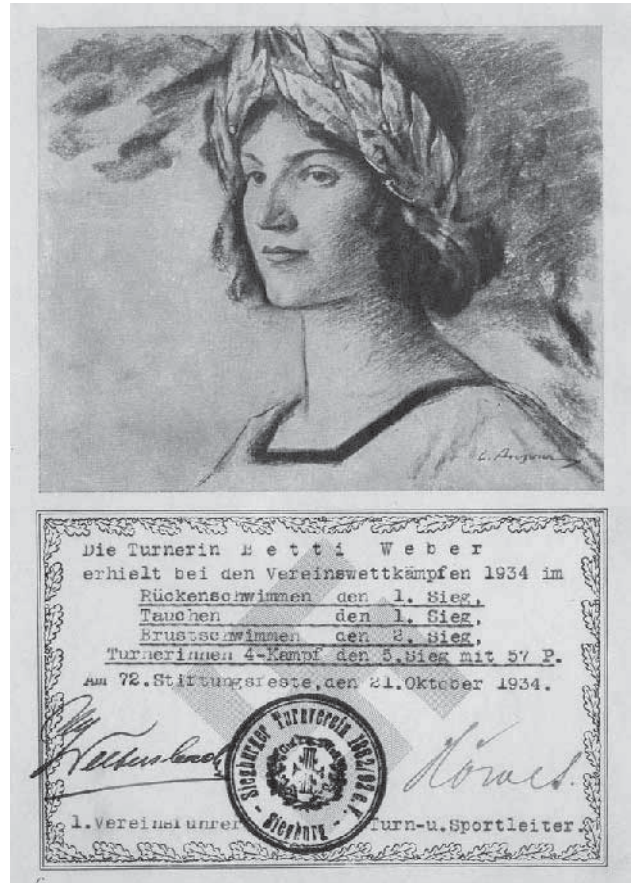 Die Turnerin Betti Weber
erhielt bei den Vereinswettkämpfen 1934 im
Rückenschwimmen den 1. Sieg,
Tauchen den 1. Sieg,
Brustschwimmen den 2. Sieg,
Turnerinnen 4-Kampf den 5.Sieg mit 57 P.
Am 72.Stiftungsfeste,den 21.Oktober 1934.
Siegburger Turnverein 1862/92 e.V.
- Siegburg -
1.Vereinsführer
Turn-u.Sportleiter.